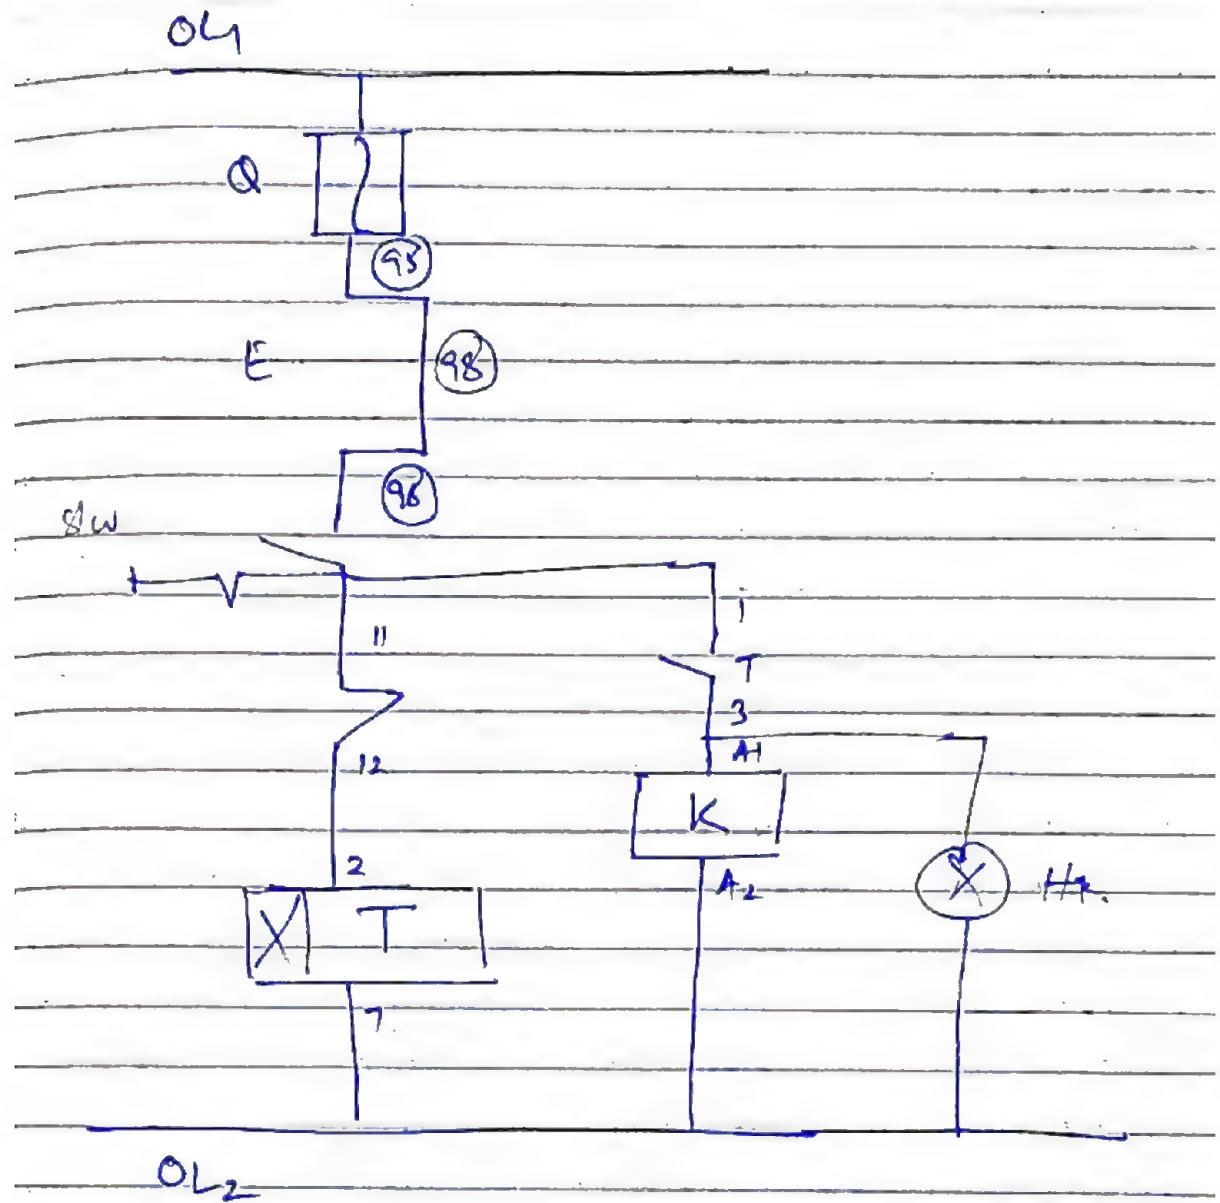 OL1
Q
95
E
98
96
SW
11
1
T
3
12
A1
K
2
A2
X T
X
H1.
7
OL2